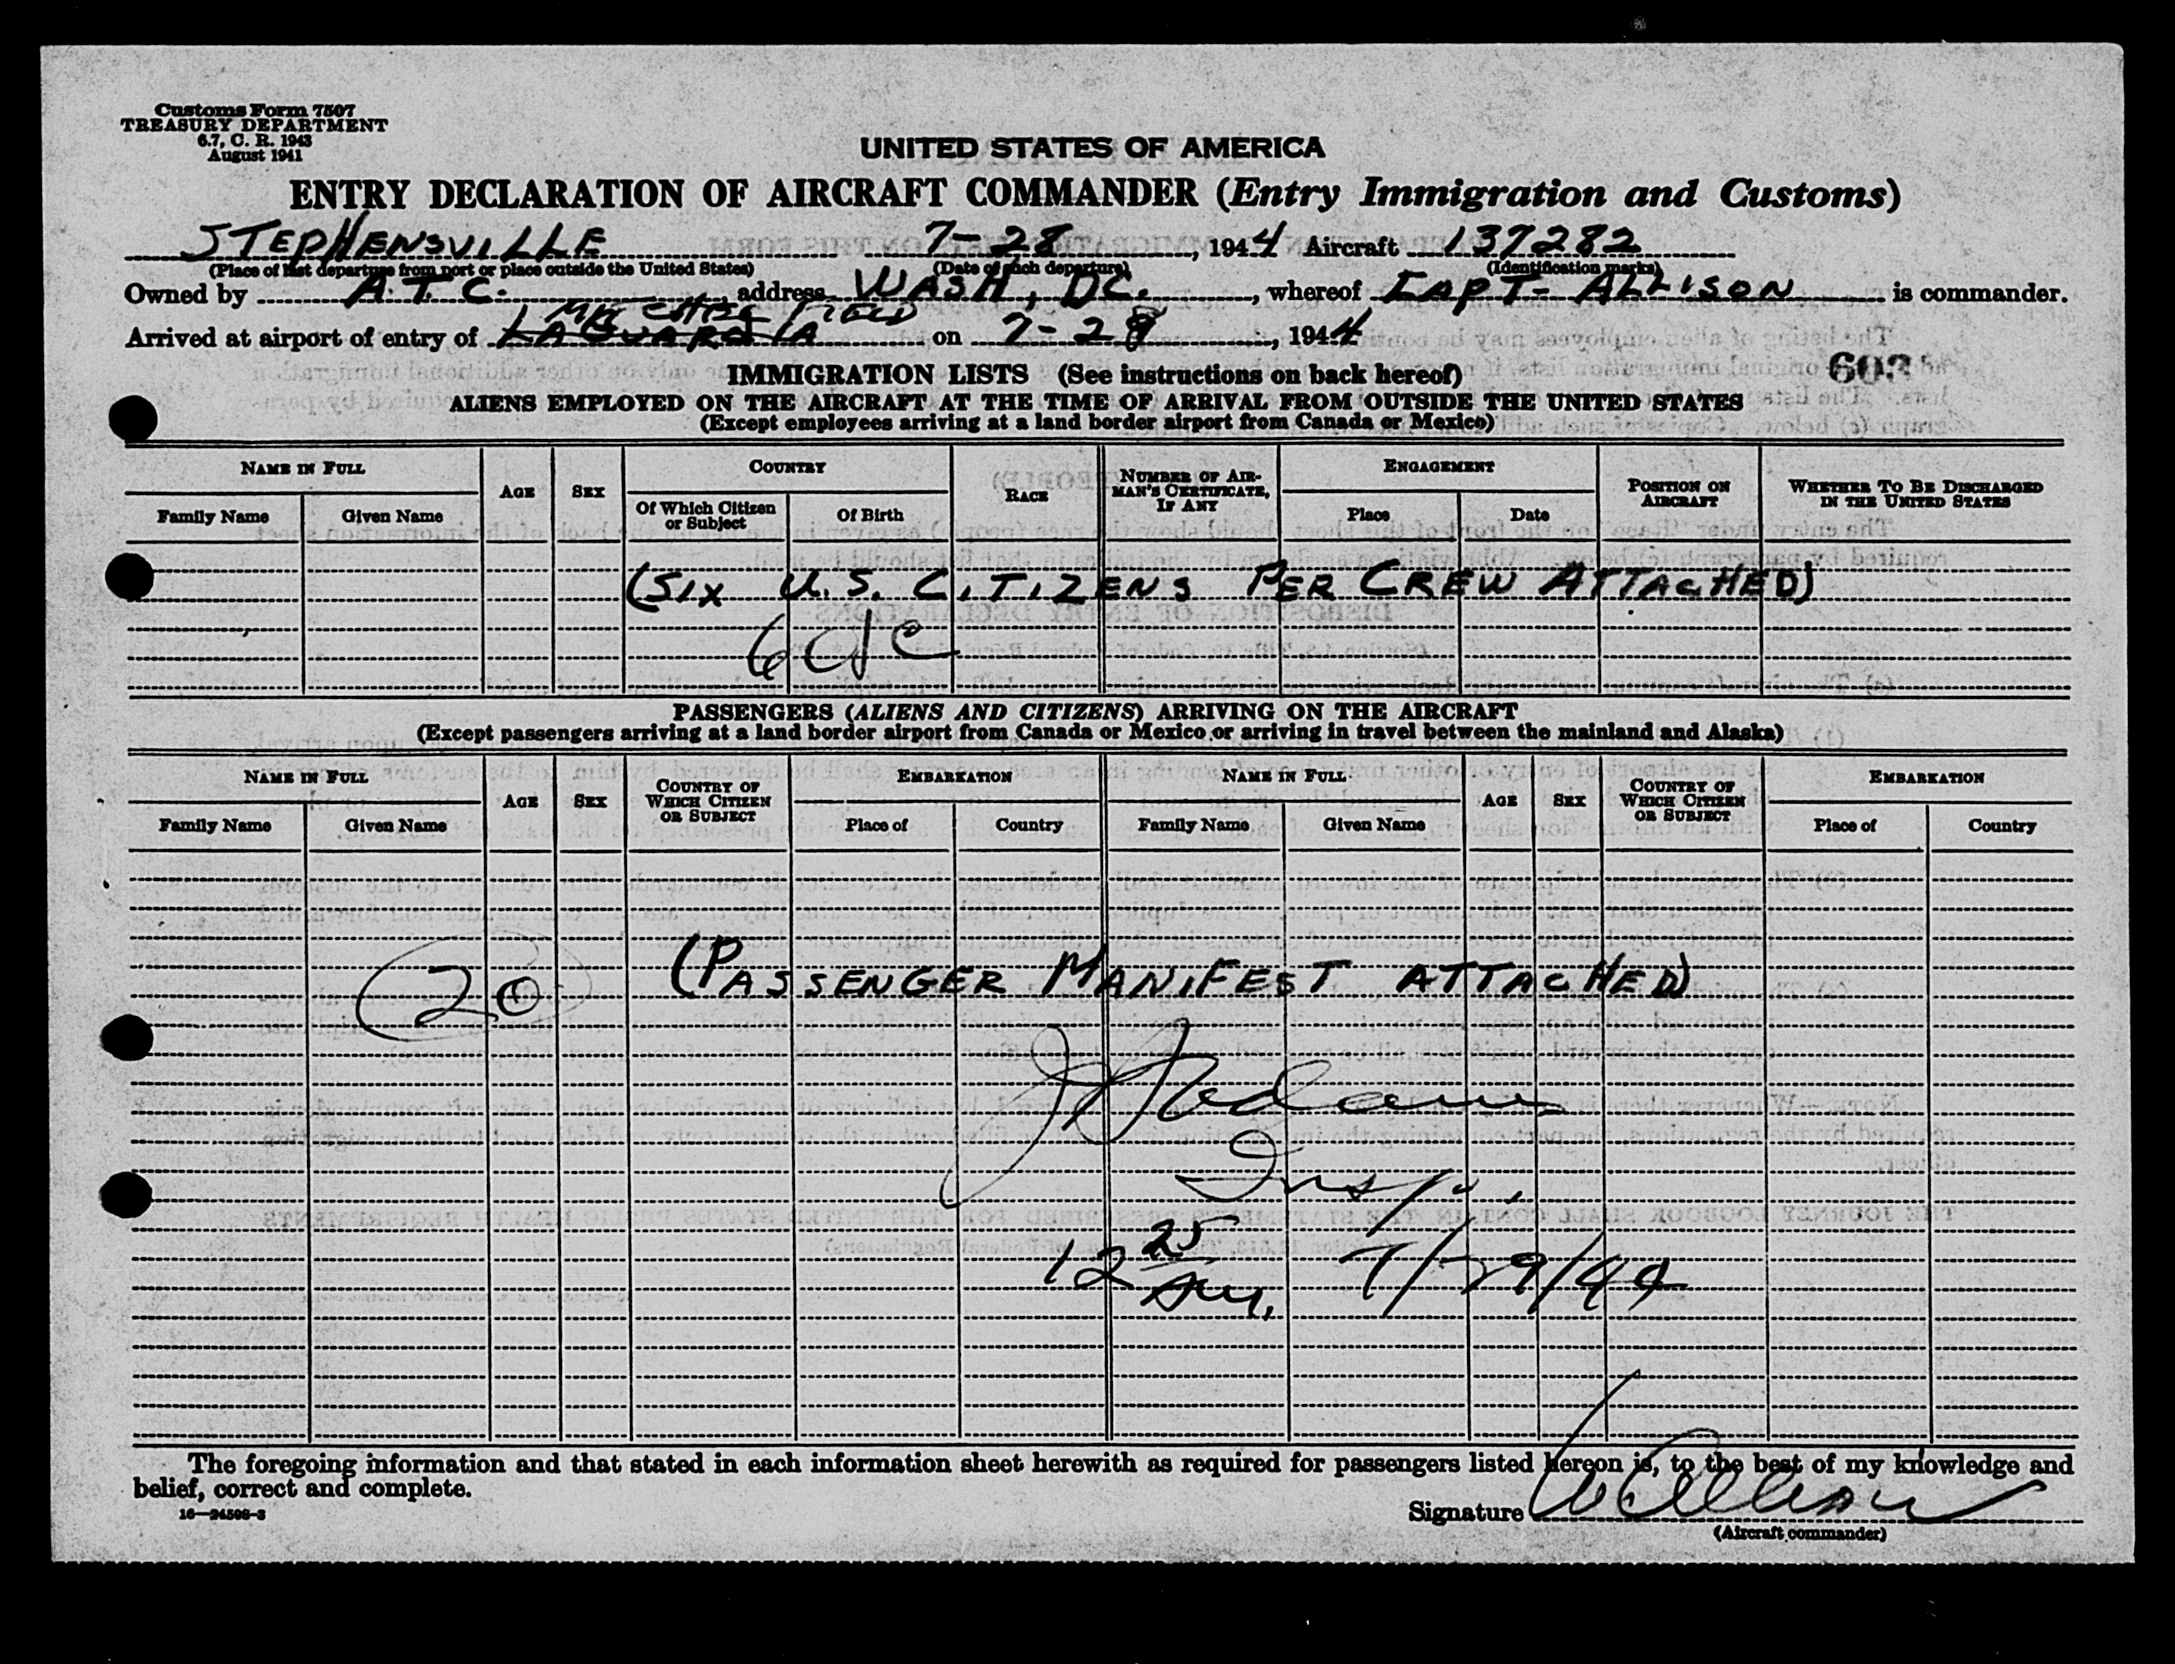 Customs Form 7507
TREASURY DEPARTMENT
6.7, C. R. 1943
August 1941
UNITED STATES OF AMERICA
ENTRY DECLARATION OF AIRCRAFT COMMANDER (Entry Immigration and Customs)
STEPHENSVILLE 7-28, 1944 Aircraft 137282
(Place of last departure from port or place outside the United States) (Date of such departure) (Identification marks)
Owned by A.T.C. address WASH, DC., whereof CAPT- ALLISON is commander.
MITCHEL FIELD
Arrived at airport of entry of LAGUARDIA on 7-29, 1944
603
IMMIGRATION LISTS (See instructions on back hereof)
ALIENS EMPLOYED ON THE AIRCRAFT AT THE TIME OF ARRIVAL FROM OUTSIDE THE UNITED STATES
(Except employees arriving at a land border airport from Canada or Mexico)
NAME IN FULL AGE SEX COUNTRY RACE NUMBER OF AIRMAN'S CERTIFICATE, IF ANY ENGAGEMENT POSITION ON AIRCRAFT WHETHER TO BE DISCHARGED IN THE UNITED STATES
Family Name Given Name Of Which Citizen or Subject Of Birth Place Date
(SIX U.S. CITIZENS PER CREW ATTACHED)
PASSENGERS (ALIENS AND CITIZENS) ARRIVING ON THE AIRCRAFT
(Except passengers arriving at a land border airport from Canada or Mexico or arriving in travel between the mainland and Alaska)
NAME IN FULL AGE SEX COUNTRY OF WHICH CITIZEN OR SUBJECT EMBARKATION NAME IN FULL AGE SEX COUNTRY OF WHICH CITIZEN OR SUBJECT EMBARKATION
Family Name Given Name Place of Country Family Name Given Name Place of Country
20 (PASSENGER MANIFEST ATTACHED)
Insp.
12 25 7/29/44
The foregoing information and that stated in each information sheet herewith as required for passengers listed hereon is, to the best of my knowledge and
belief, correct and complete.
16—24508-3
Signature W Allison
(Aircraft commander)